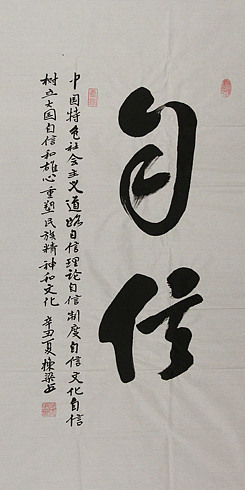 自信
中国特色社会主义道路自信理论自信制度自信文化自信
树立大国自信和雄心重塑民族精神和文化 辛丑夏栋梁书